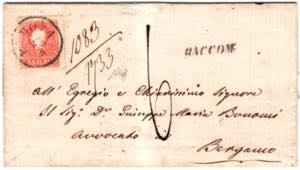 1083
1733
RACCOM
All' Egregio e Chiarissimo Signore
Il Sig. Dr. Giuseppe Maria Bonomi
Avvocato
Bergamo